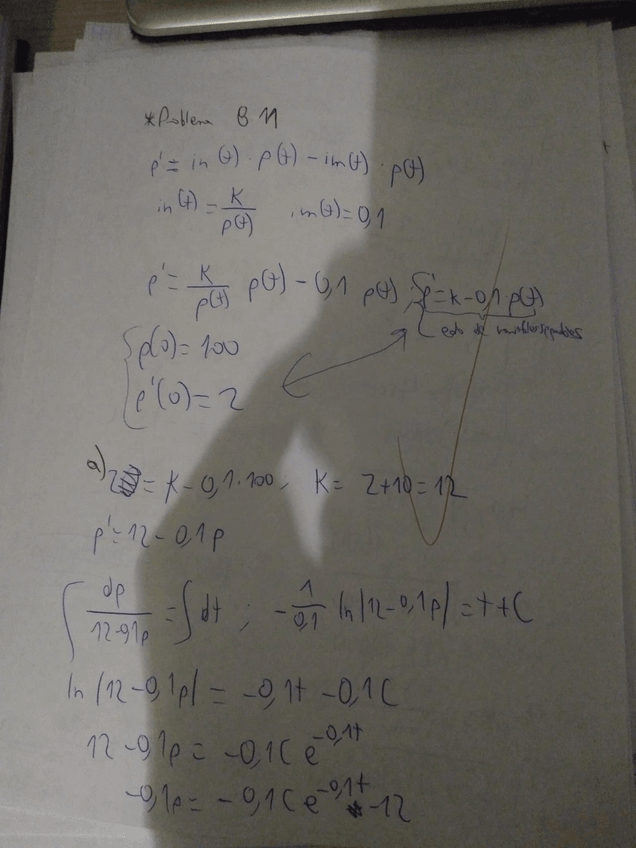 *Problema B 11
p' = in(t) · p(t) - im(t) · p(t)
in(t) = K/p(t) im(t) = 0,1
p' = K/p(t) p(t) - 0,1 p(t) ; p' = K - 0,1 p(t)
edo de variables separables
{ p(0) = 100
p'(0) = 2
a) 2 = K - 0,1·100, K = 2+10 = 12
p' = 12 - 0,1p
∫ dp/(12-0,1p) = ∫ dt ; -1/0,1 ln|12-0,1p| = t + C
ln|12-0,1p| = -0,1t - 0,1C
12 - 0,1p = -0,1C e^(-0,1t)
-0,1p = -0,1C e^(-0,1t) - 12